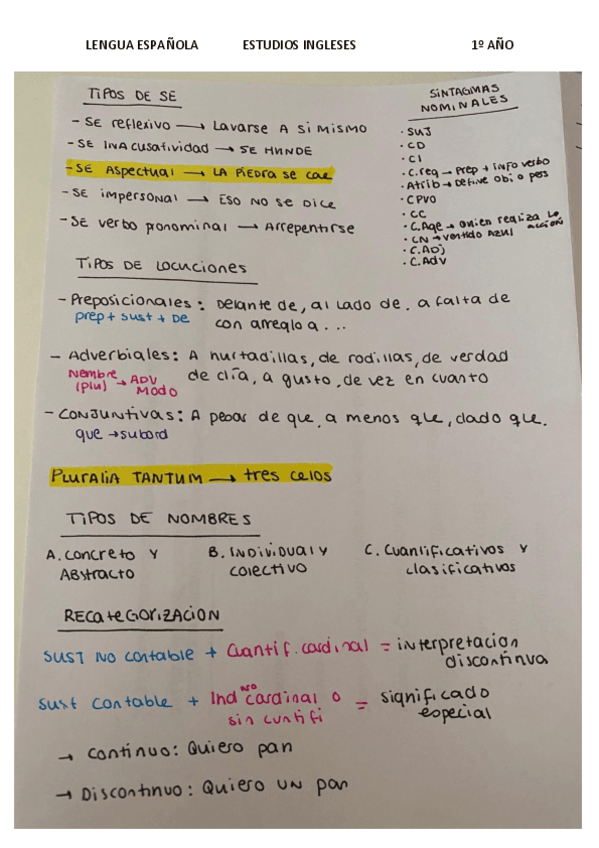 LENGUA ESPAÑOLA ESTUDIOS INGLESES 1º AÑO
TIPOS DE SE
- SE reflexivo → Lavarse A sí mismo
- SE INAcusatividad → SE HUNDE
- SE Aspectual → LA PIEDRA se cae
- SE impersonal → ESO NO SE DICE
- SE verbo pronominal → Arrepentirse
SINTAGMAS
NOMINALES
· SUJ
· CD
· CI
· C.reg → Prep + info verbo
· Atrib → Define obj o pers
· CPVO
· CC
· C.Age → Quien realiza LA acción
· CN → vestido AZUL
· C.ADJ
· C.Adv
TIPOS DE LOCUCIONES
- Preposicionales: Delante de, al lado de, a falta de
prep + sust + DE con arreglo a...
- Adverbiales: A hurtadillas, de rodillas, de verdad
Nombre (plu) → ADV MODO de día, a gusto, de vez en cuanto
- CONJUNTIVAS: A pesar de que, a menos que, dado que.
que → subord
PLURALIA TANTUM → tres celos
TIPOS DE NOMBRES
A. Concreto Y Abstracto
B. INDIVIDUAL y colectivo
C. Cuantificativos y clasificativos
RECATEGORIZACION
SUST NO contable + Cuantif. cardinal = interpretacion discontinua
Sust contable + Ind NO cardinal o sin cuntifi = significado especial
→ continuo: Quiero pan
→ Discontinuo: Quiero UN pan